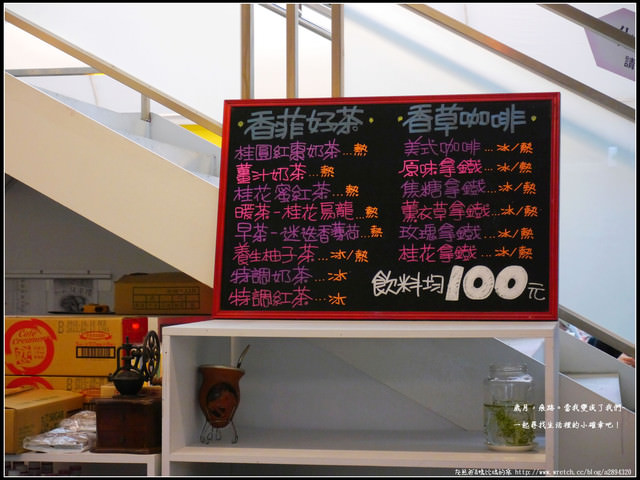 香菲好茶
桂圓紅棗奶茶...熱
薑汁奶茶...熱
桂花蜜紅茶...熱
暖茶-桂花烏龍...熱
早茶-迷迭香薄荷...熱
養生柚子茶...冰/熱
特調奶茶...冰
特調紅茶...冰
香草咖啡
美式咖啡...冰/熱
原味拿鐵...冰/熱
焦糖拿鐵...冰/熱
薰衣草拿鐵...冰/熱
玫瑰拿鐵...冰/熱
桂花拿鐵...冰/熱
飲料均100元
Café
Creamer
歲月。痕跡。當我變成了我們
一起尋找生活裡的小確幸吧！
http://www.wretch.cc/blog/a2894320